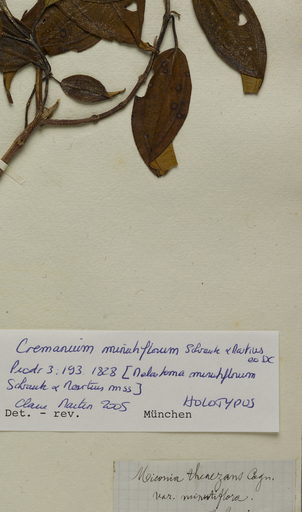 Cremanium minutiflorum Schrank & Martius
ex DC
Prodr 3: 193 1828 [Melastoma minutiflorum
Schrank & Martius mss]
HOLOTYPUS
2005
Det. - rev. München
Miconia theaezans Cogn.
var. minutiflora.